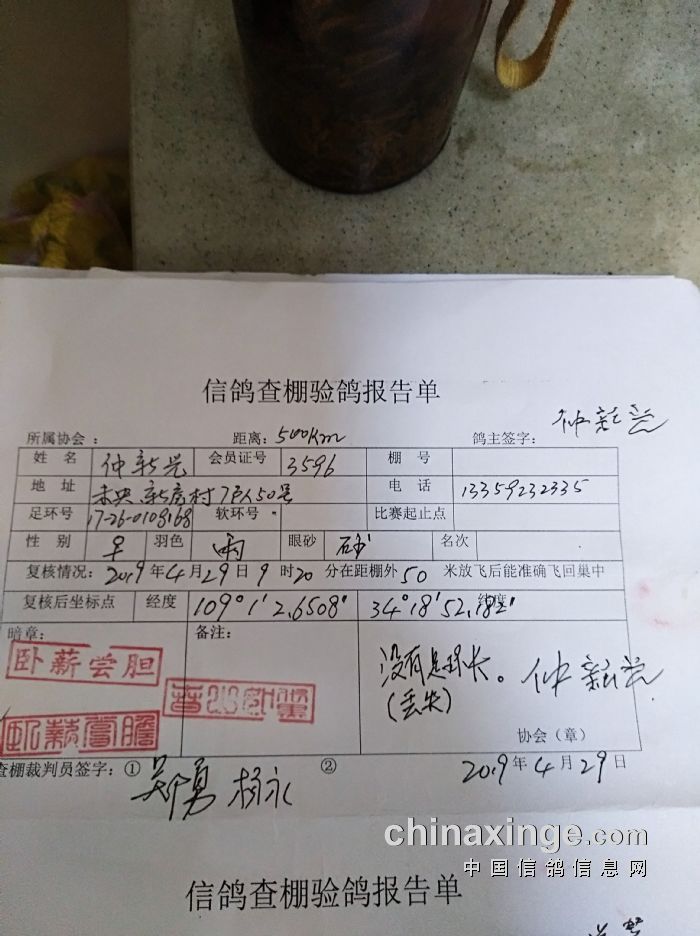 信鸽查棚验鸽报告单
所属协会： 距离：500Km 鸽主签字：仲新兴
姓 名 仲新兴 会员证号 3596 棚 号
地 址 未央新房村7巨人50号 电 话 13359232335
足环号 17-26-0109168 软环号 比赛起止点
性 别 羽色 雨 眼砂 砂 名次
复核情况：2019年4月29日9时20分在距棚外50米放飞后能准确飞回巢中
复核后坐标点 经度 109°1′2.6508″ 34°18′52.182″ 纬度
暗章： 备注：
卧薪尝胆
没有足环长。仲新兴
(丢失)
协会（章）
查棚裁判员签字：① 吴勇 杨永 ② 2019年4月29日
chinaxinge.com
中国信鸽信息网
信鸽查棚验鸽报告单